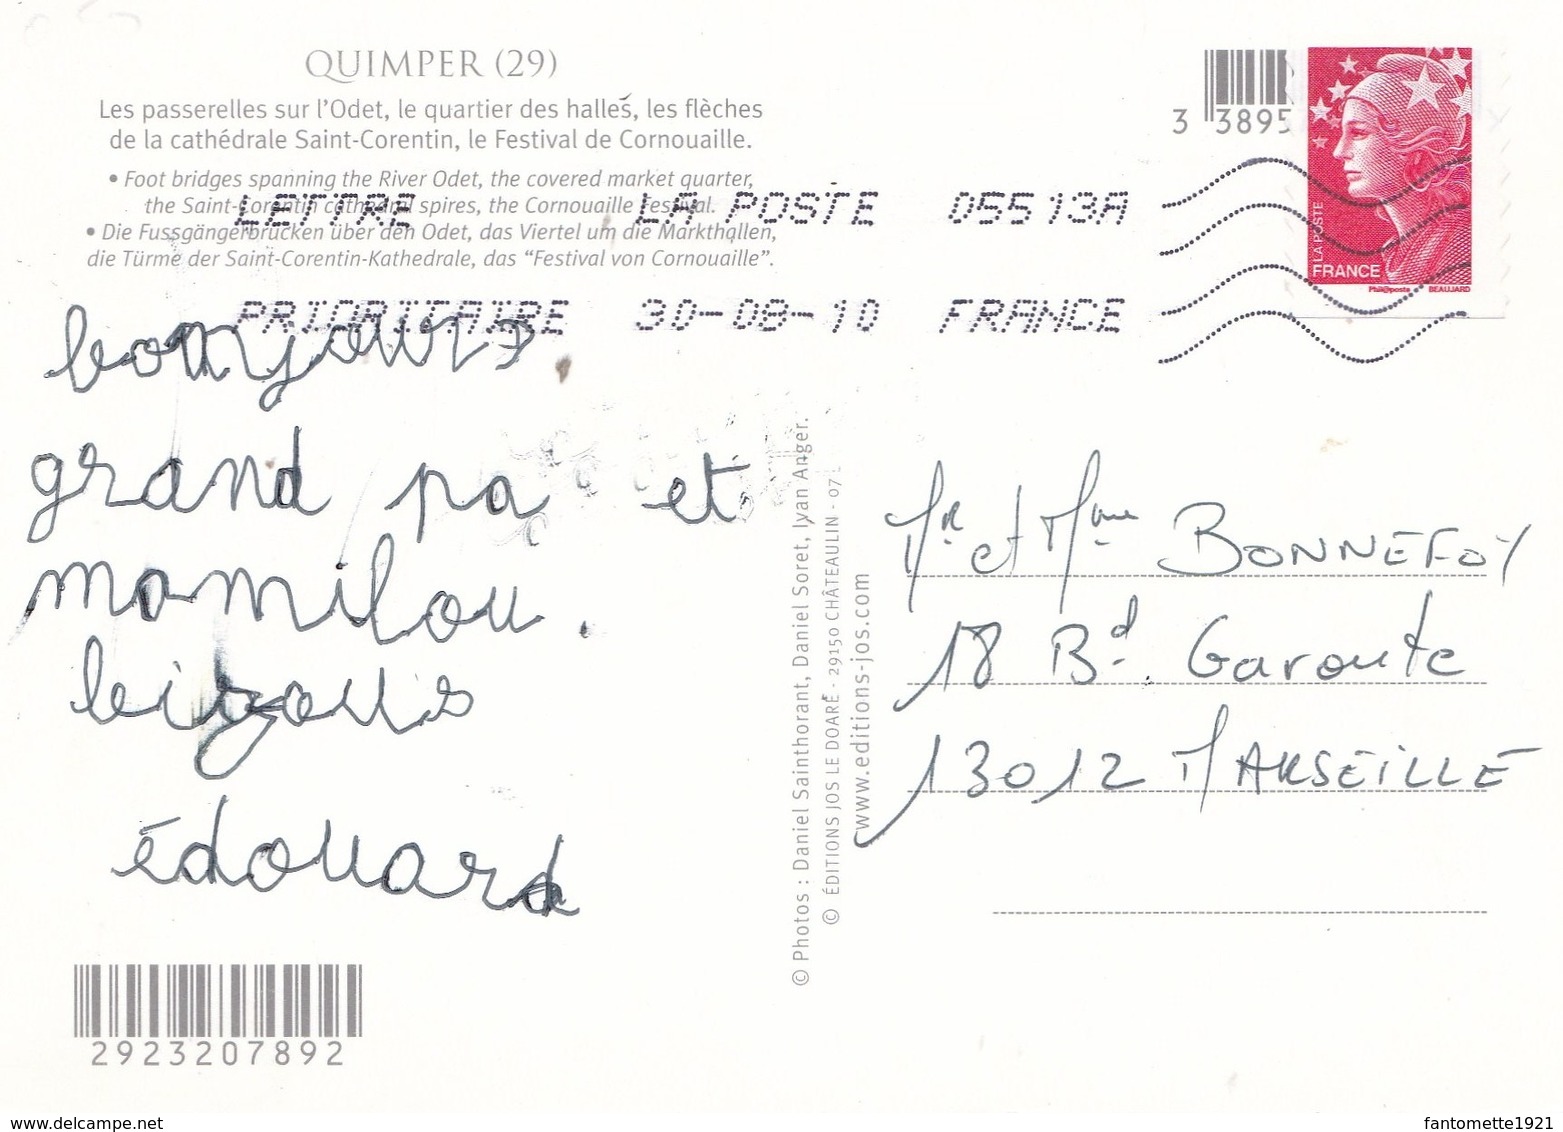 QUIMPER (29)
Les passerelles sur l'Odet, le quartier des halles, les flèches
de la cathédrale Saint-Corentin, le Festival de Cornouaille.
• Foot bridges spanning the River Odet, the covered market quarter,
the Saint-Corentin cathedral spires, the Cornouaille Festival.
• Die Fussgängerbrücken über den Odet, das Viertel um die Markthallen,
die Türme der Saint-Corentin-Kathedrale, das "Festival von Cornouaille".
3 3895
LA POSTE
FRANCE
Phil@poste BEAUJARD
LETTRE LA POSTE 05513A
PRIORITAIRE 30-08-10 FRANCE
bonjour
grand pa et
mamilou.
bizous
édouard
2923207892
© Photos : Daniel Sainthorant, Daniel Soret, Ivan Anger.
© ÉDITIONS JOS LE DOARÉ - 29150 CHÂTEAULIN - 07 L
www.editions-jos.com
Mr et Mme BONNEFOY
18 Bd. Garoute
13012 MARSEILLE
delcampe.net
fantomette1921